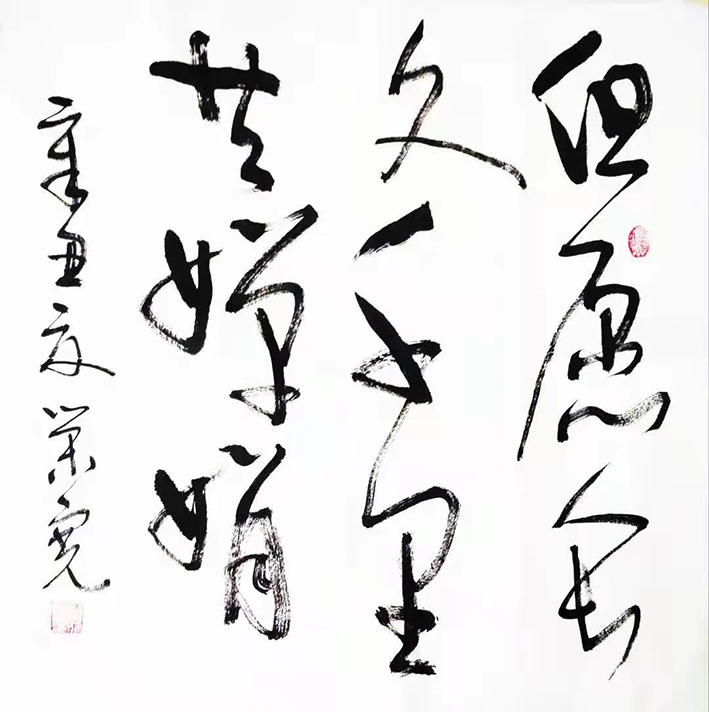 但愿人长
久千里
共婵娟
辛丑夏 荣